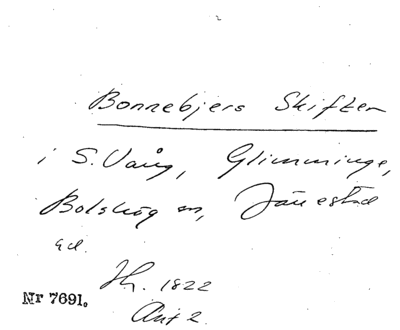 Bonnebjers Skiften
i S. Vång, Glimminge,
Bolshög m, Jänestad
Hr. 1822
Nr 7691.
Akt 2.